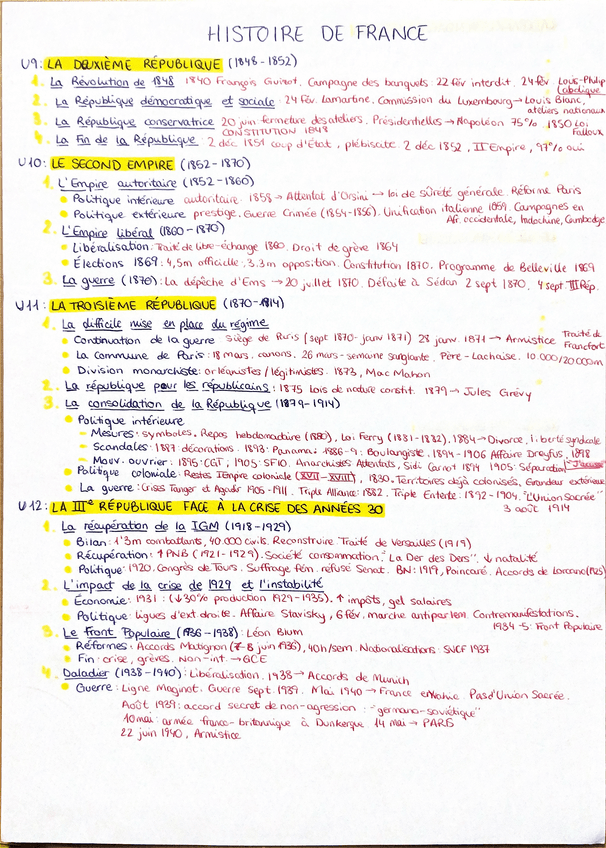 HISTOIRE DE FRANCE
U9: LA DEUXIÈME RÉPUBLIQUE (1848-1852)
1. La Révolution de 1848 1840 François Guizot. Campagne des banquets 22 fév interdit. 24 fév Louis-Philip
(abdique
2. La République démocratique et sociale : 24 Fév. Lamartine. Commission du Luxembourg → Louis Blanc,
ateliers nationaux
3. La République conservatrice 20 juin fermeture des ateliers. Présidentielles → Napoléon 75%. 1850 Loi
Falloux
CONSTITUTION 1848
4. La Fin de la République 2 déc 1851 coup d'État, plébiscite 2 déc 1852, II Empire, 97% oui
U10: LE SECOND EMPIRE (1852-1870)
1. L'Empire autoritaire (1852-1860)
• Politique intérieure autoritaire. 1858 → Attentat d'Orsini → loi de sûreté générale. Réforme Paris
• Politique extérieure prestige. Guerre Crimée (1854-1856). Unification italienne 1859. Campagnes en
Afr. occidentale, Indochine, Cambodge
2. L'Empire libéral (1860-1870)
• Libéralisation: Traité de libre-échange 1860. Droit de grève 1864
• Élections 1869: 4,5m officielle, 3.3m opposition. Constitution 1870. Programme de Belleville 1869
3. La guerre (1870): La dépêche d'Ems → 20 juillet 1870. Défaite à Sédan 2 sept 1870. 4 sept III Rép.
U11: LA TROISIÈME RÉPUBLIQUE (1870-1914)
1. La difficile mise en place du régime
• Continuation de la guerre Siège de Paris (sept 1870-janv 1871) 28 janv. 1871 → Armistice Traité de
Francfort
• La Commune de Paris: 18 mars. canons. 26 mars - semaine sanglante. Père-Lachaise. 10.000/20000m
• Division monarchiste: orléanistes / légitimistes. 1873, Mac Mahon
2. La république pour les républicains: 1875 Lois de nature constit. 1879 → Jules Grévy
3. La consolidation de la République (1879-1914)
• Politique intérieure
- Mesures: symboles. Repos hebdomadaire (1880), Loi Ferry (1881-1882). 1884 → Divorce, liberté syndicale
- Scandales: 1887: décorations. 1893: Panama. 1886-9: Boulangiste. 1894-1906 Affaire Dreyfus, 1898
"J'accuse"
- Mouv. ouvrier: 1895: CGT, 1905: SFIO. Anarchistes Attentats, Sidi Carnot 1894 1905: Séparation
• Politique coloniale: Restes 1 Empire coloniale (XVII - XVIII), 1830. Territoires déjà colonisés. Grandeur extérieure
• La guerre: Crises Tanger et Agadir 1905-1911. Triple Alliance: 1882. Triple Entente: 1892-1904. "L'Union Sacrée"
3 août 1914
U12: LA IIIe RÉPUBLIQUE FACE À LA CRISE DES ANNÉES 30
1. La récupération de la IGM (1918-1929)
• Bilan: 1'3m combattants, 40.000 civils. Reconstruire. Traité de Versailles (1919)
• Récupération: ↑PNB (1921-1929). Société consommation. "La Der des Ders". ↓ natalité
• Politique: 1920. Congrès de Tours. Suffrage fém. refusé Senat. BN: 1919, Poincaré. Accords de Locarno (1925)
2. L'impact de la crise de 1929 et l'instabilité
• Économie: 1931: (↓30% production 1929-1935). ↑ impôts, gel salaires
• Politique: ligues d'ext droite. Affaire Stavisky, 6 fév. marche antiparlem. Contremanifestations.
1934-5: Front Populaire
3. Le Front Populaire (1936-1938): Léon Blum
• Réformes: Accords Matignon (7-8 juin 1936), 40h/sem. Nationalisations: SNCF 1937
• Fin: crise, grèves. Non-int. → GCE
4. Daladier (1938-1940): Libéralisation. 1938 → Accords de Munich
• Guerre: Ligne Maginot. Guerre Sept. 1939. Mai 1940 → France envahie. Pas d'Union Sacrée.
Août 1939: accord secret de non-agression: "germano-soviétique"
10 mai: armée franco-britannique à Dunkerque 14 mai → PARIS
22 juin 1940, Armistice